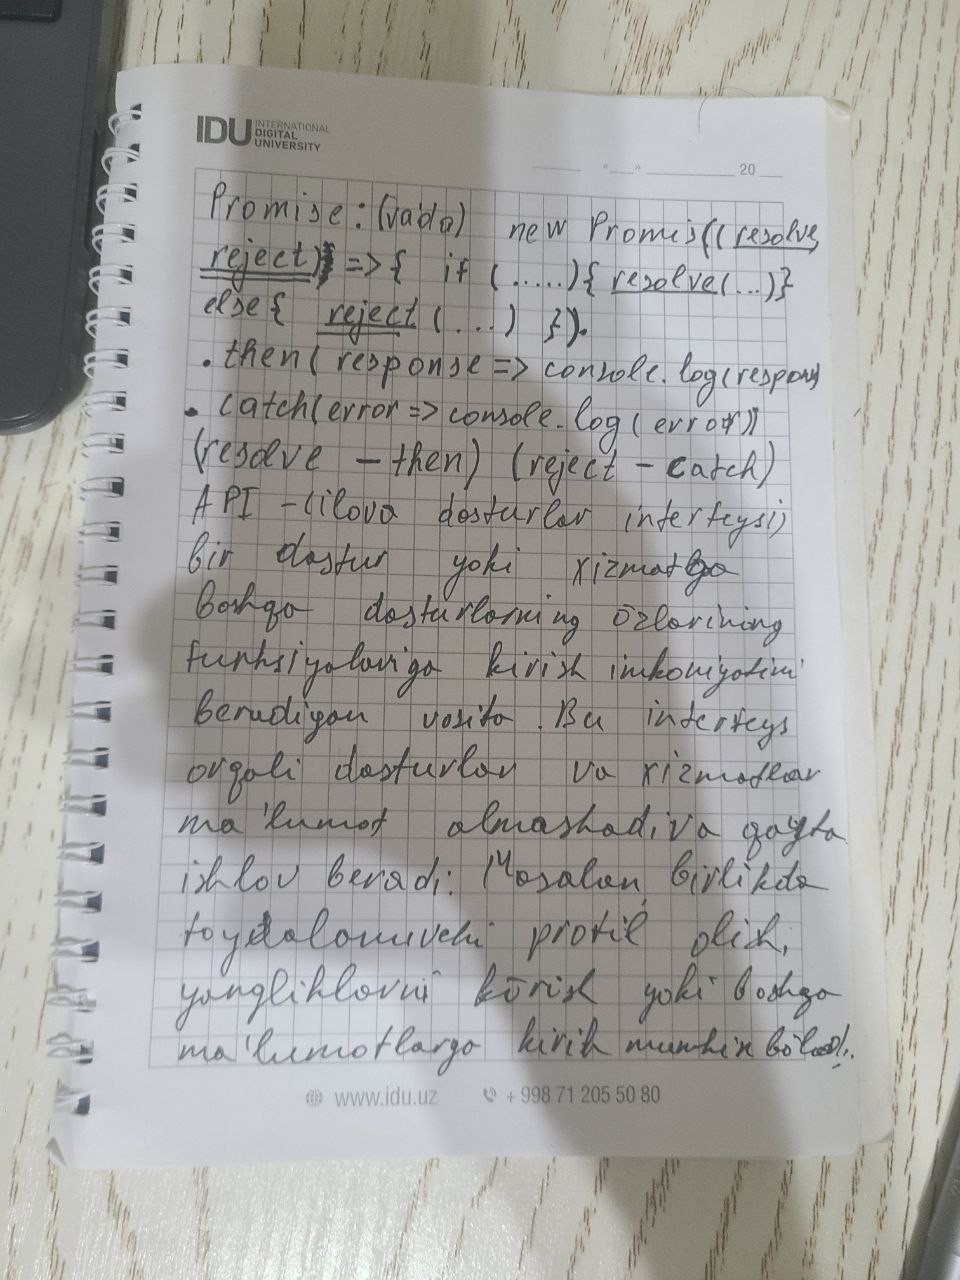 IDU INTERNATIONAL
DIGITAL
UNIVERSITY
"__" 20
Promise: (va'da) new Promis((resolve,
reject) => { if (.....){ resolve(...)}
else { reject (....) }).
.then( response => console.log(respons)
.catch(error => console.log(error))
(resolve - then) (reject - catch)
API - (ilova dasturlar interfeysi)
bir dastur yoki xizmatga
boshqa dasturlarning o'zlarining
funksiyalariga kirish imkoniyatini
beradigan vosita. Bu interfeys
orqali dasturlar va xizmatlar
ma'lumot almashadi va qayta
ishlov beradi: Masalan, birlikda
foydalanuvchi profil olish,
yangliklarni ko'rish yoki boshqa
ma'lumotlarga kirih mumkin bo'ladi.
www.idu.uz + 998 71 205 50 80